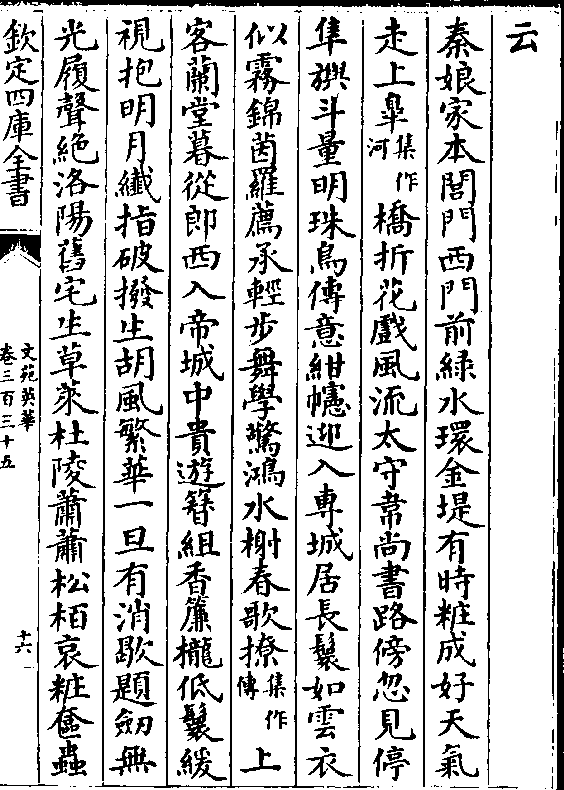 云
秦娘家本閶門西門前緑水環金堤有時粧成好天氣
走上臯集作河橋折花戲風流太守韋尚書路傍忽見停
隼旟斗量明珠鳥傳意紺幰迎入専城居長鬟如雲衣
似霧錦茵羅薦承輕步舞學驚鴻水榭春歌撩集作傳上
客蘭堂暮從郎西入帝城中貴遊簪組香簾櫳低鬟緩
視抱明月纎指破撥生胡風繁華一旦有消歇題劒無
光履聲絶洛陽舊宅生草萊杜陵蕭蕭松栢哀粧奩蟲
欽定四庫全書
文苑英華
卷三百三十五
十六